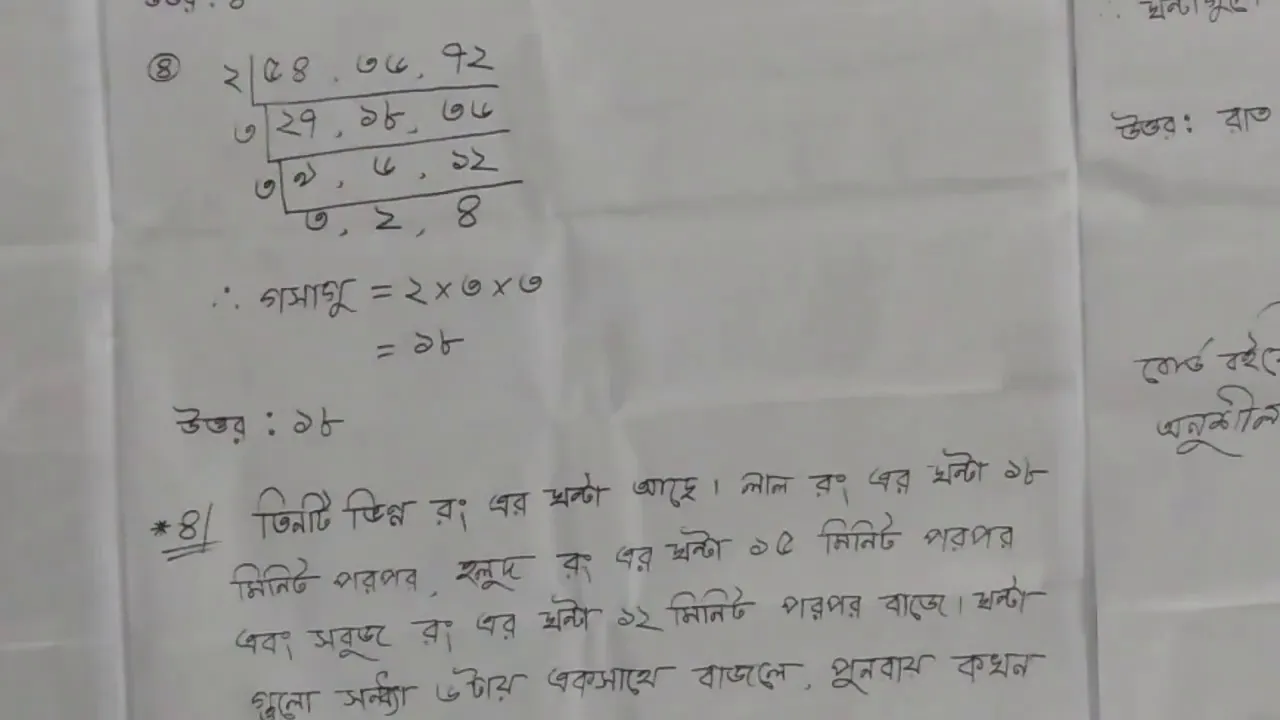 ৪ ২ ৫৪, ৩৬, ৭২
৩ ২৭, ১৮, ৩৬
৩ ৯, ৬, ১২
৩, ২, ৪
∴ গসাগু = ২ × ৩ × ৩
= ১৮
উত্তর : ১৮
*৪/ তিনটি ভিন্ন রং এর ঘন্টা আছে। লাল রং এর ঘন্টা ১৮
মিনিট পরপর, হলুদ রং এর ঘন্টা ১৫ মিনিট পরপর
এবং সবুজ রং এর ঘন্টা ১২ মিনিট পরপর বাজে। ঘন্টা
গুলো সন্ধ্যা ৬টায় একসাথে বাজলে, পুনরায় কখন
উত্তর : রাত
বোর্ড